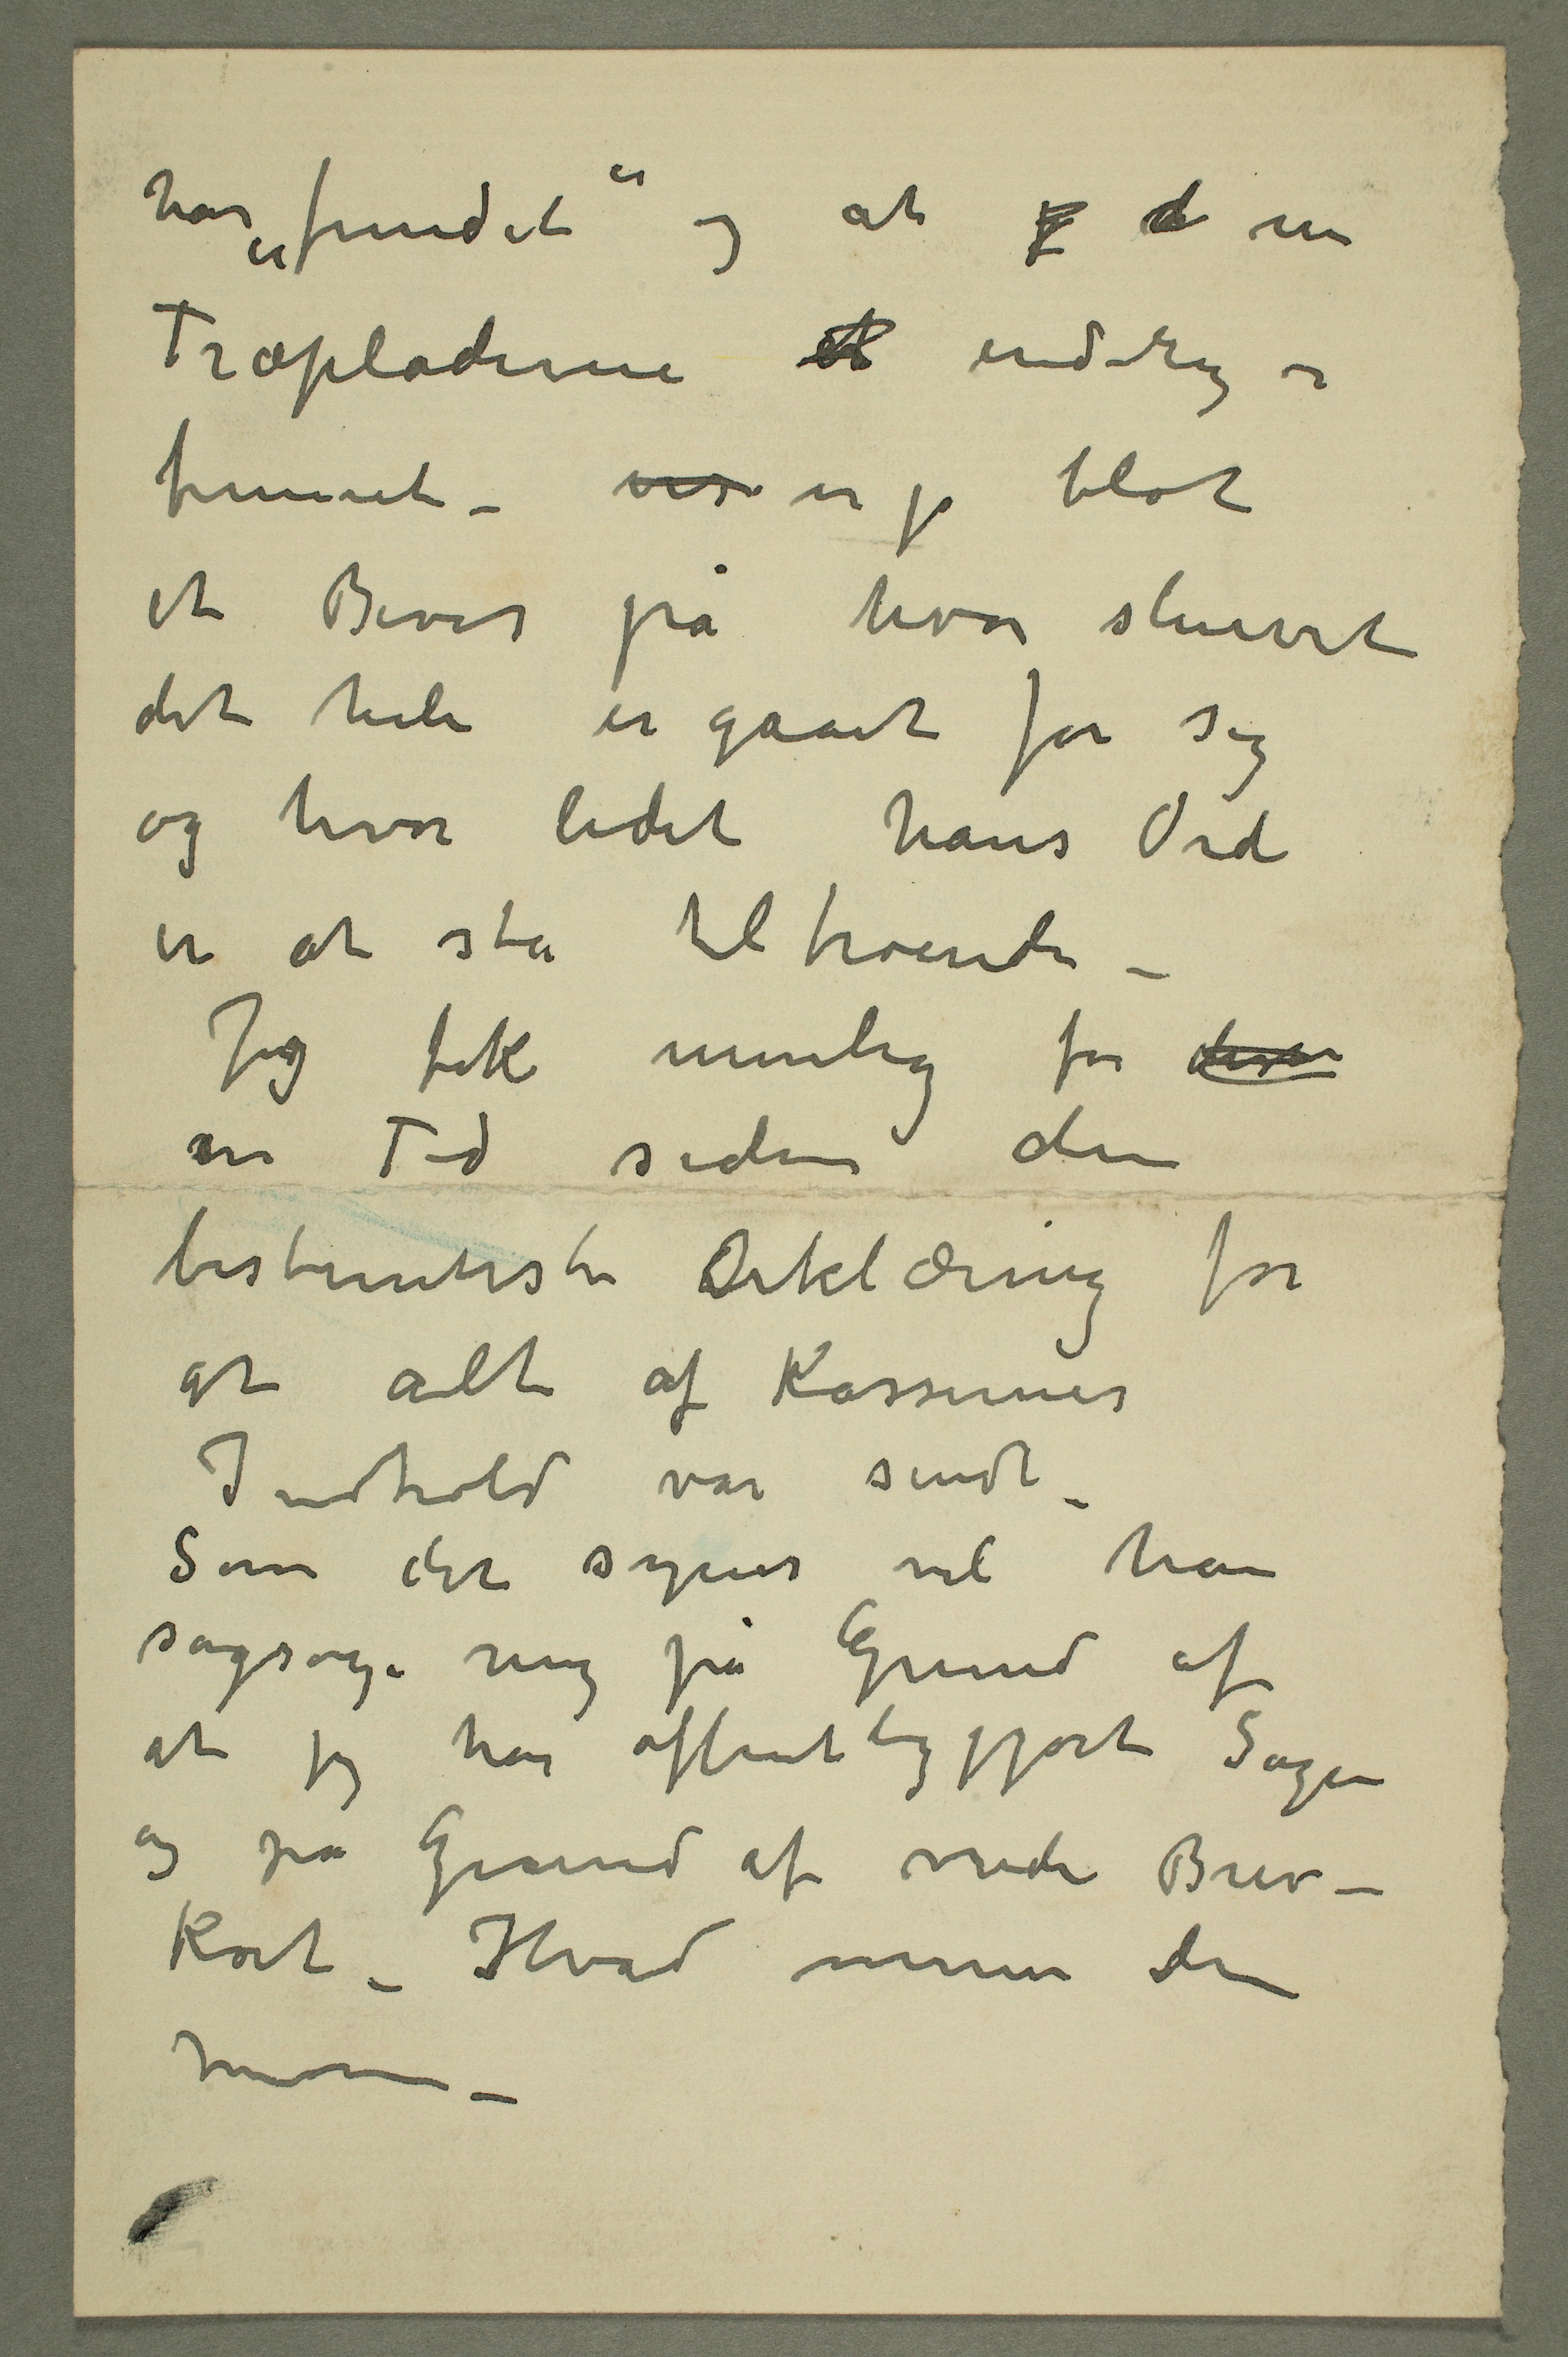 har „fundet“ og at d en
Træpladerne endelig er
funnet – er jo blot
et Bevis på hvor sluevet
det hele er gaaet for sig
og hvor lidet hans Ord
er at stå til troende –
Jeg fik nemlig for
en Tid siden den
bestemteste Erklæring for
at alt af Kassernes
Indhold var sendt –
Som det synes vil han
sagsøge mig på Grund af
at jeg har offentliggjort Sagen
og på Grund af vrede Brev-
Kort – Hvad mener den